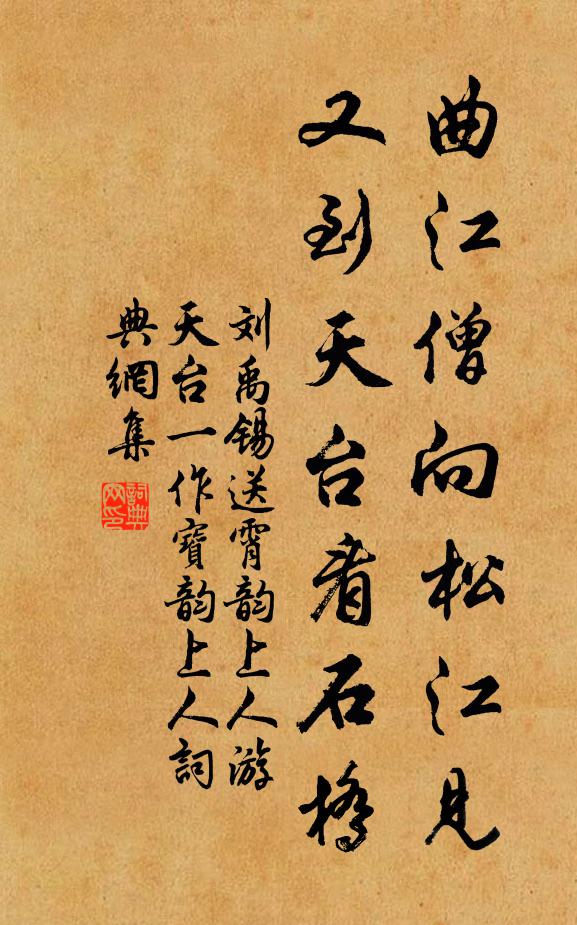 曲江僧向松江见
又到天台看石桥
刘禹锡送霄韵上人游
天台一作寶韵上人詞
典網集
詞典
网印